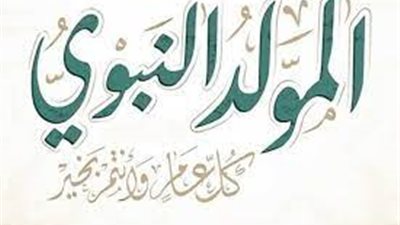 المَوْلِدُ النَّبَوِيُّ
كُلُّ عَامٍ وَأَنْتُمْ بِخَيْرٍ